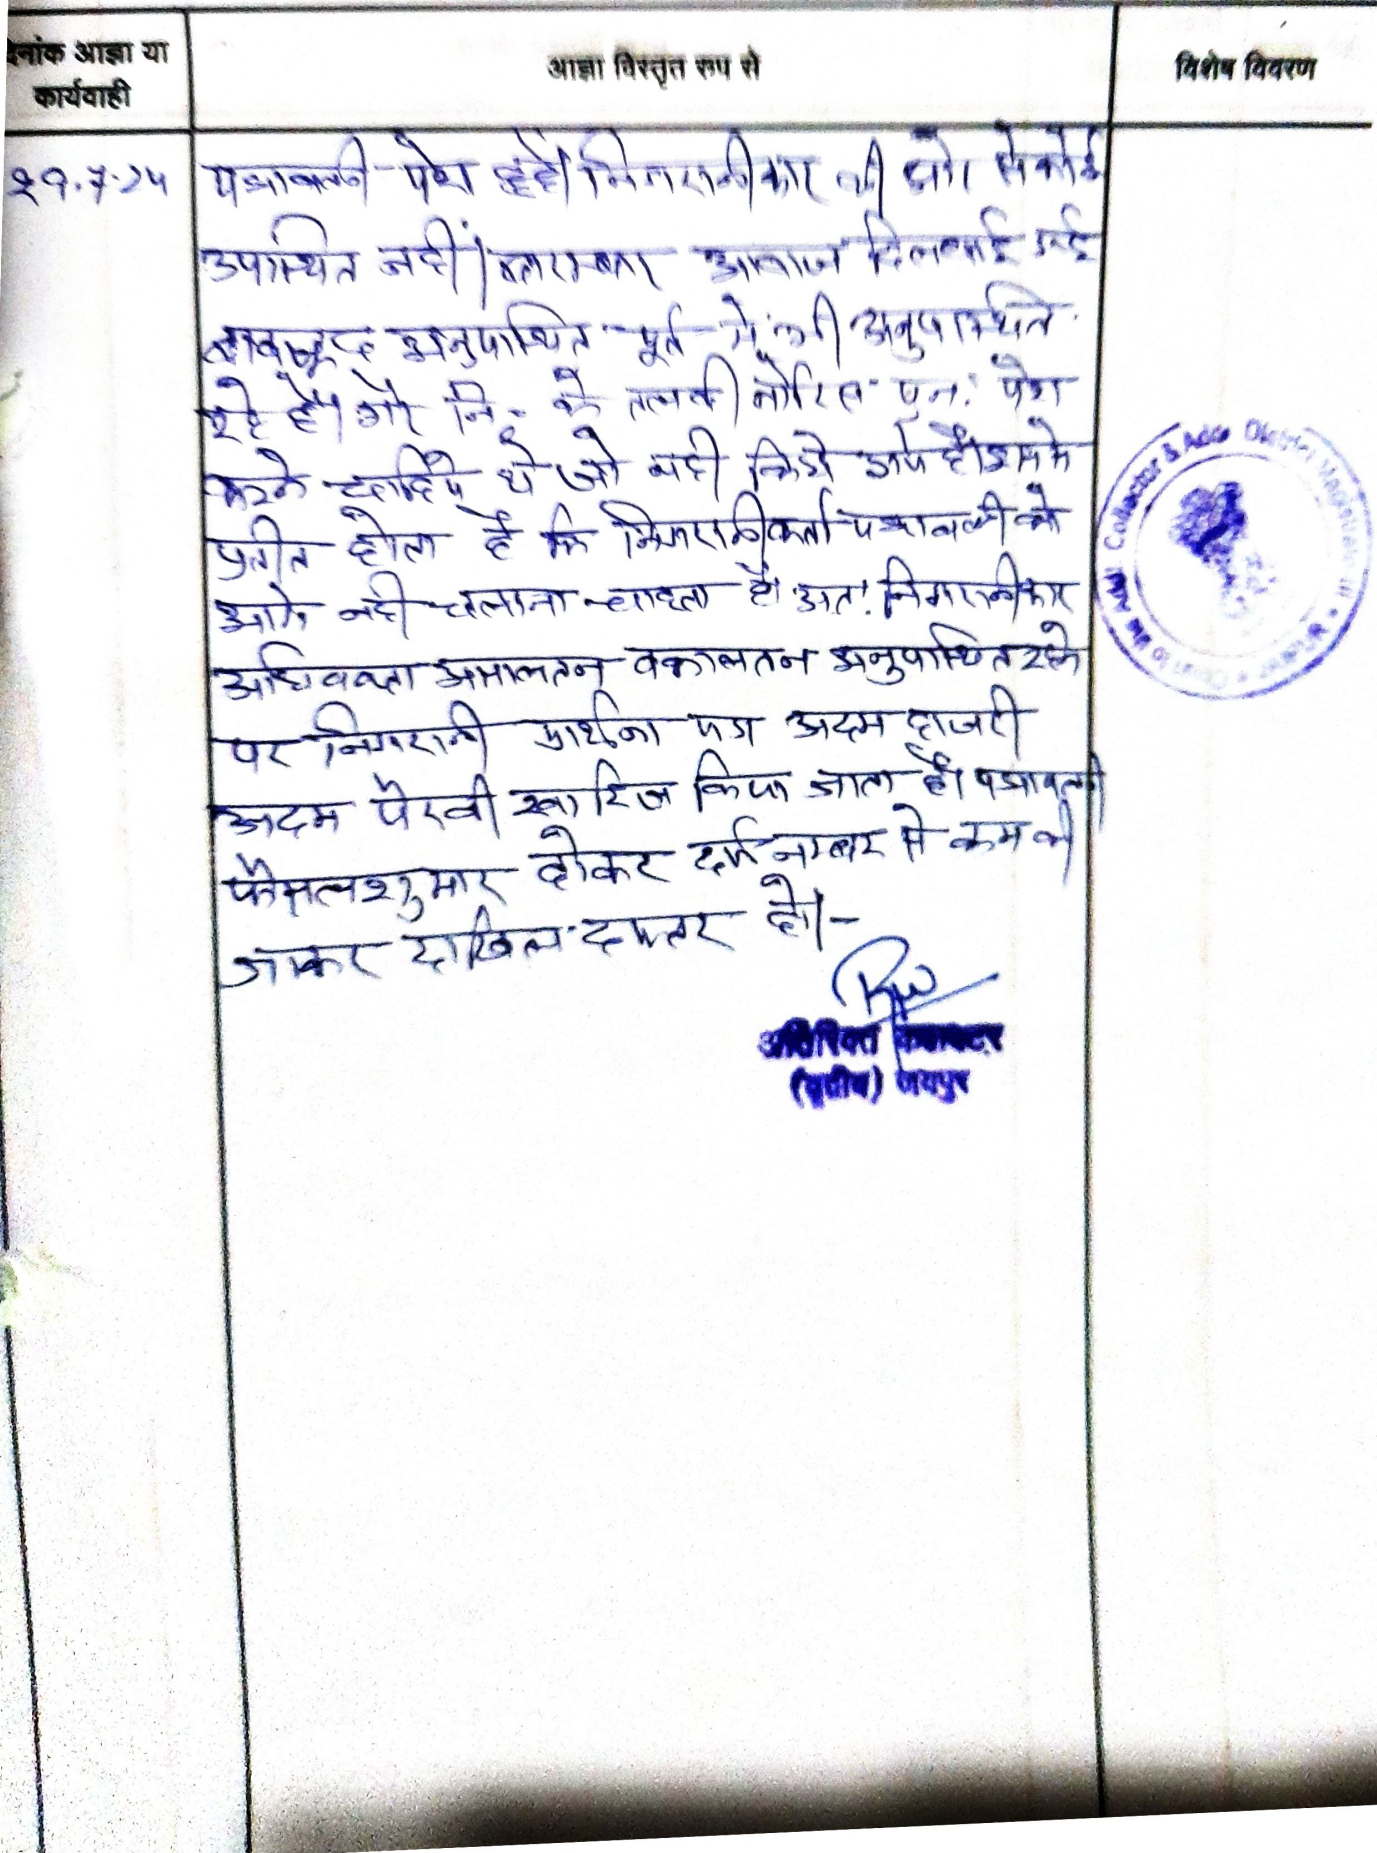 दिनांक आज्ञा या
कार्यवाही
आज्ञा विस्तृत रुप से
विशेष विवरण
पत्रावली पेश हुई। निगरानीकार की ओर से कोई
उपस्थित नहीं। बारम्बार आवाज दिलवाई गई
बावजूद अनुपस्थित पूर्व में भी अनुपस्थित
रहे हैं। गैर नि. के तलबी नोटिस पुन: पेश
करने चाहिये थे जो नही किये गये है। इससे
प्रतीत होता है कि निगरानीकर्ता पत्रावली को
आगे नही चलाना चाहता है। अत: निगरानीकार
अधिवक्ता असालतन वकालतन अनुपस्थित रहने
पर निगरानी प्रार्थना पत्र अदम हाजरी
अदम पैरवी खारिज किया जाता है। पत्रावली
फैसल शुमार होकर दर्ज नम्बर से कम की
जाकर दाखिल दफ्तर हो।-
अतिरिक्त कलक्टर
(तृतीय) जयपुर
Collector & Addl. District Magistrate III